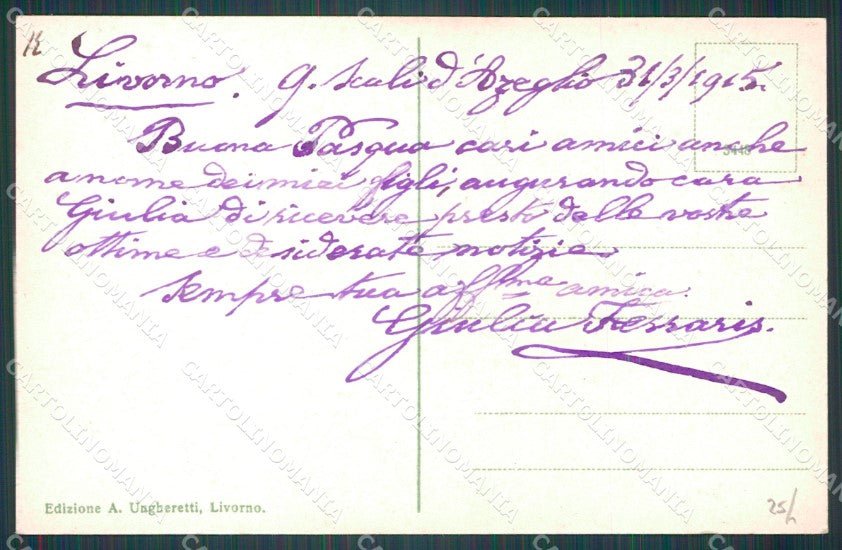 K
Livorno. 9. Scali d'Azeglio 31/3/1915.
Buona Pasqua cari amici anche
a nome dei miei figli, augurando cara
Giulia di ricevere presto delle vostre
ottime e desiderate notizie.
Sempre tua affma amica.
Giulia Ferraris.
3448
Edizione A. Ungheretti, Livorno.
25/
CARTOLINOMANIA